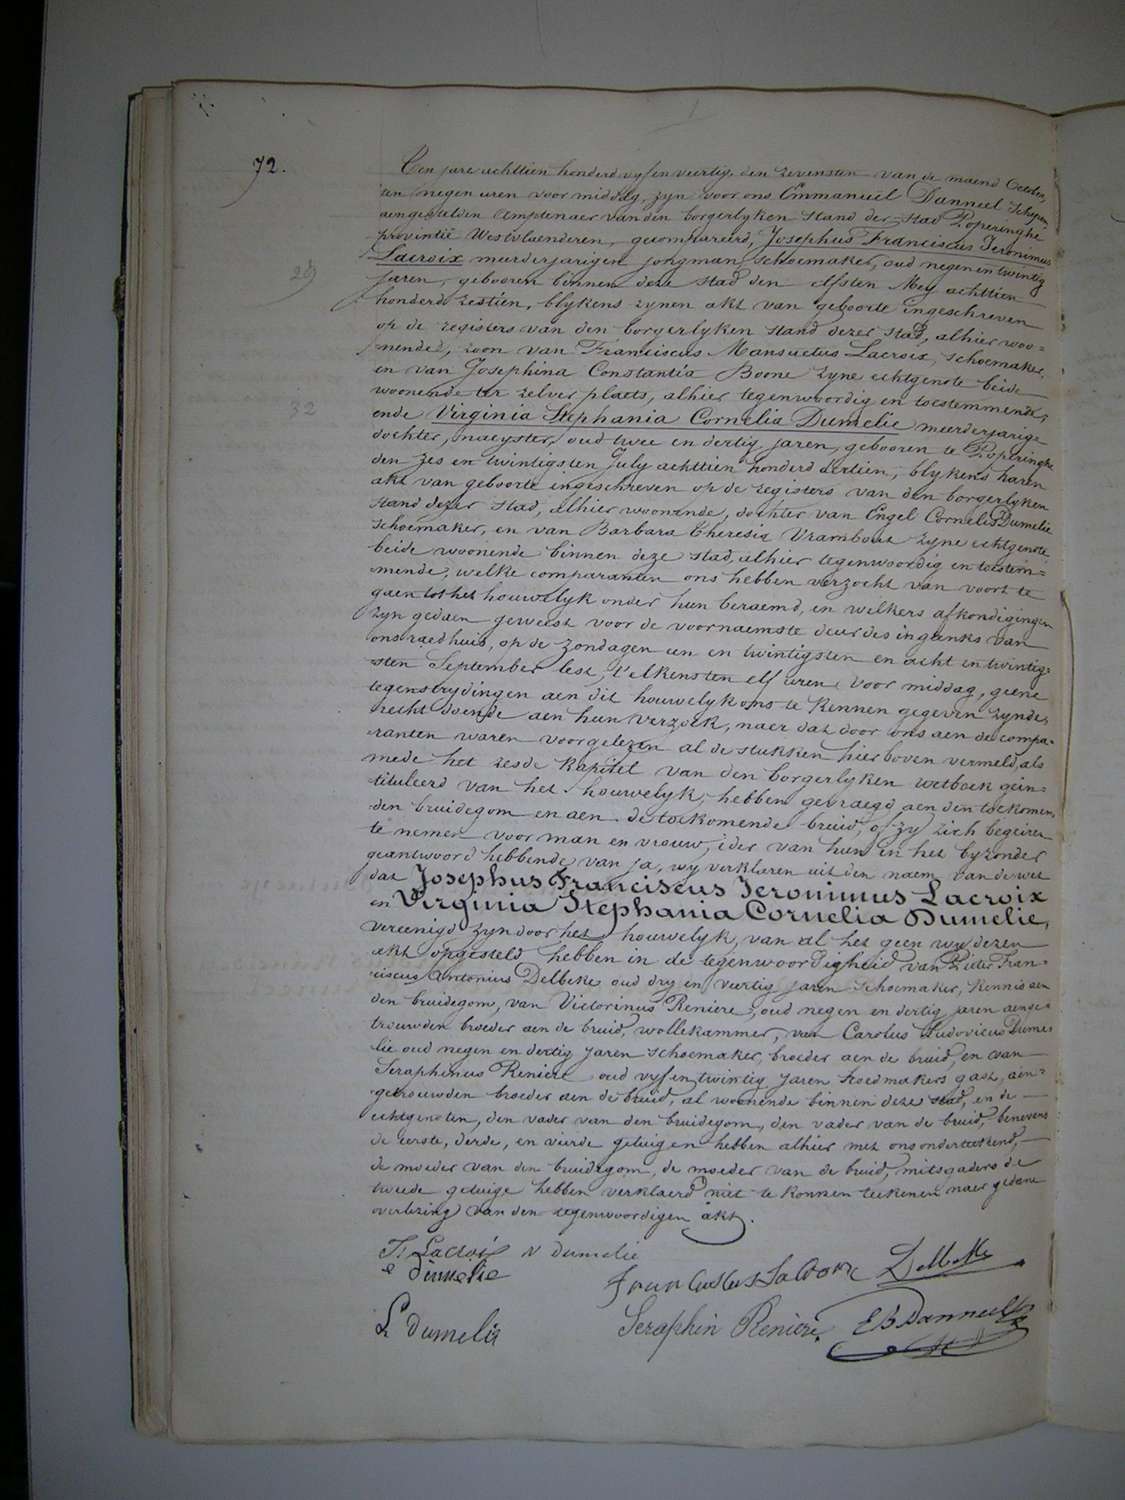 72.
Ten jare achttien honderd vyf en veertig, den zevensten van de maend October,
ten negen uren voor middag, zyn voor ons Emmanuel Danneel Schepen
aengestelden Amptenaer van den borgerlyken stand der stad Poperinghe
provintie Westvlaenderen, gecompareerd, Josephus Franciscus Jeronimus
Lacroix meerderjarigen jongman, schoemaker, oud negen en twintig
29
jaren, gebooren binnen deze stad den elfsten Mey achttien
honderd zestien, blykens zynen akt van geboorte ingeschreven
op de registers van den borgerlyken stand dezer stad, alhier woo=
nende, zoon van Franciscus Mansuetus Lacroix, schoemaker,
en van Josephina Constantia Boone zyne echtgenote beide
woonende ter zelver plaets, alhier tegenwoordig en toestemmende,
32
ende Virginia Stephania Cornelia Dumelie meerderjarige
dochter, naeyster, oud twee en dertig jaren, gebooren te Poperinghe
den zes en twintigsten July achttien honderd dertien, blykens haren
akt van geboorte ingeschreven op de registers van den borgerlyken
stand dezer stad, alhier woonende, dochter van Engel Cornelis Dumelie
schoemaker, en van Barbara Theresia Vrambout zyne echtgenote
beide woonende binnen deze stad, alhier tegenwoordig en toestem=
mende, welke comparanten ons hebben verzocht van voort te
gaen tot het houwelyk onder hun beraemd, en welkers afkondigingen
zyn gedaen geweest voor de voornaemste deur des ingangs van
ons raedhuis, op de zondagen een en twintigsten en acht en twintig=
sten September lest, t'elkens ten elf uren, voor middag, geene
tegenstrydingen aen dit houwelyk ons te kennen gegeven zynde,
recht doende aen hun verzoek, naer dat door ons aen de compa=
ranten waren voorgelezen al de stukken hier boven vermeld, als
mede het zesde kapitel van den borgerlyken wetboek gein=
tituleerd van het houwelyk, hebben gevraegd aen den toekomen=
den bruidegom en aen de toekomende bruid, of zy zich begeiren
te nemen voor man en vrouw, ider van hun in het byzonder
geantwoord hebbende van ja, wy verklaren uit den naem van de wet
dat Josephus Franciscus Jeronimus Lacroix
en Virginia Stephania Cornelia Dumelie,
vereenigd zyn door het houwelyk, van al het geen wy dezen
akt opgesteld hebben in de tegenwoordigheid van Pieter Fran=
ciscus Antonius Delbeke oud dry en veertig jaren schoemaker, kennis aen
den bruidegom, van Victorinus Reniere, oud negen en dertig jaren aenge=
trouwden broeder aen de bruid, wollekammer, van Carolus Ludovicus Dume=
lie oud negen en dertig jaren schoemaker, broeder aen de bruid, en van
Seraphinus Reniere oud vyf en twintig jaren hoedmakers gast, aen=
getrouwden broeder aen de bruid, al woonende binnen deze stad, en de
echtgenoten, den vader van den bruidegom, den vader van de bruid, benevens
de eerste, derde, en vierde getuigen hebben alhier met ons onderteekend,
de moeder van den bruidegom, de moeder van de bruid, mitsgaders de
tweede getuige hebben verklaerd niet te konnen teekenen naer gedane
overlezing van den tegenwoordigen akt.
J: Lacroix v Dumelie
e Dumelie
Delbeke
L Dumelie Seraphin Reniere EB Danneel